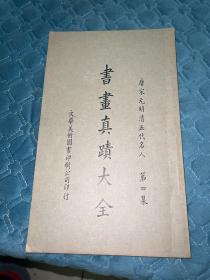 唐宋元明清五代名人 第四集
書畫真蹟大全
文華美術圖書印刷公司印行